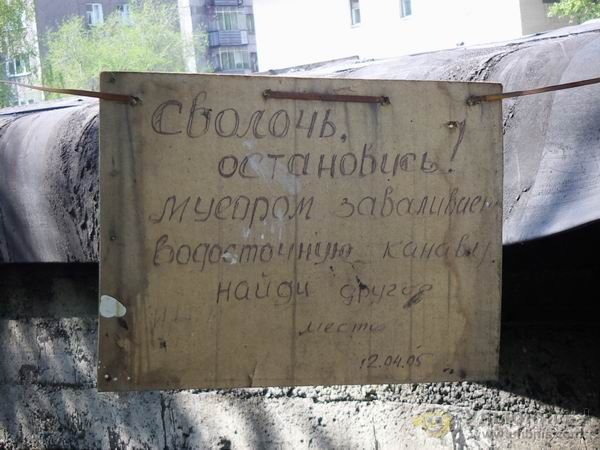 Сволочь,
остановись!
мусором заваливаем
водосточную канаву,
найди другое
место
12.04.05